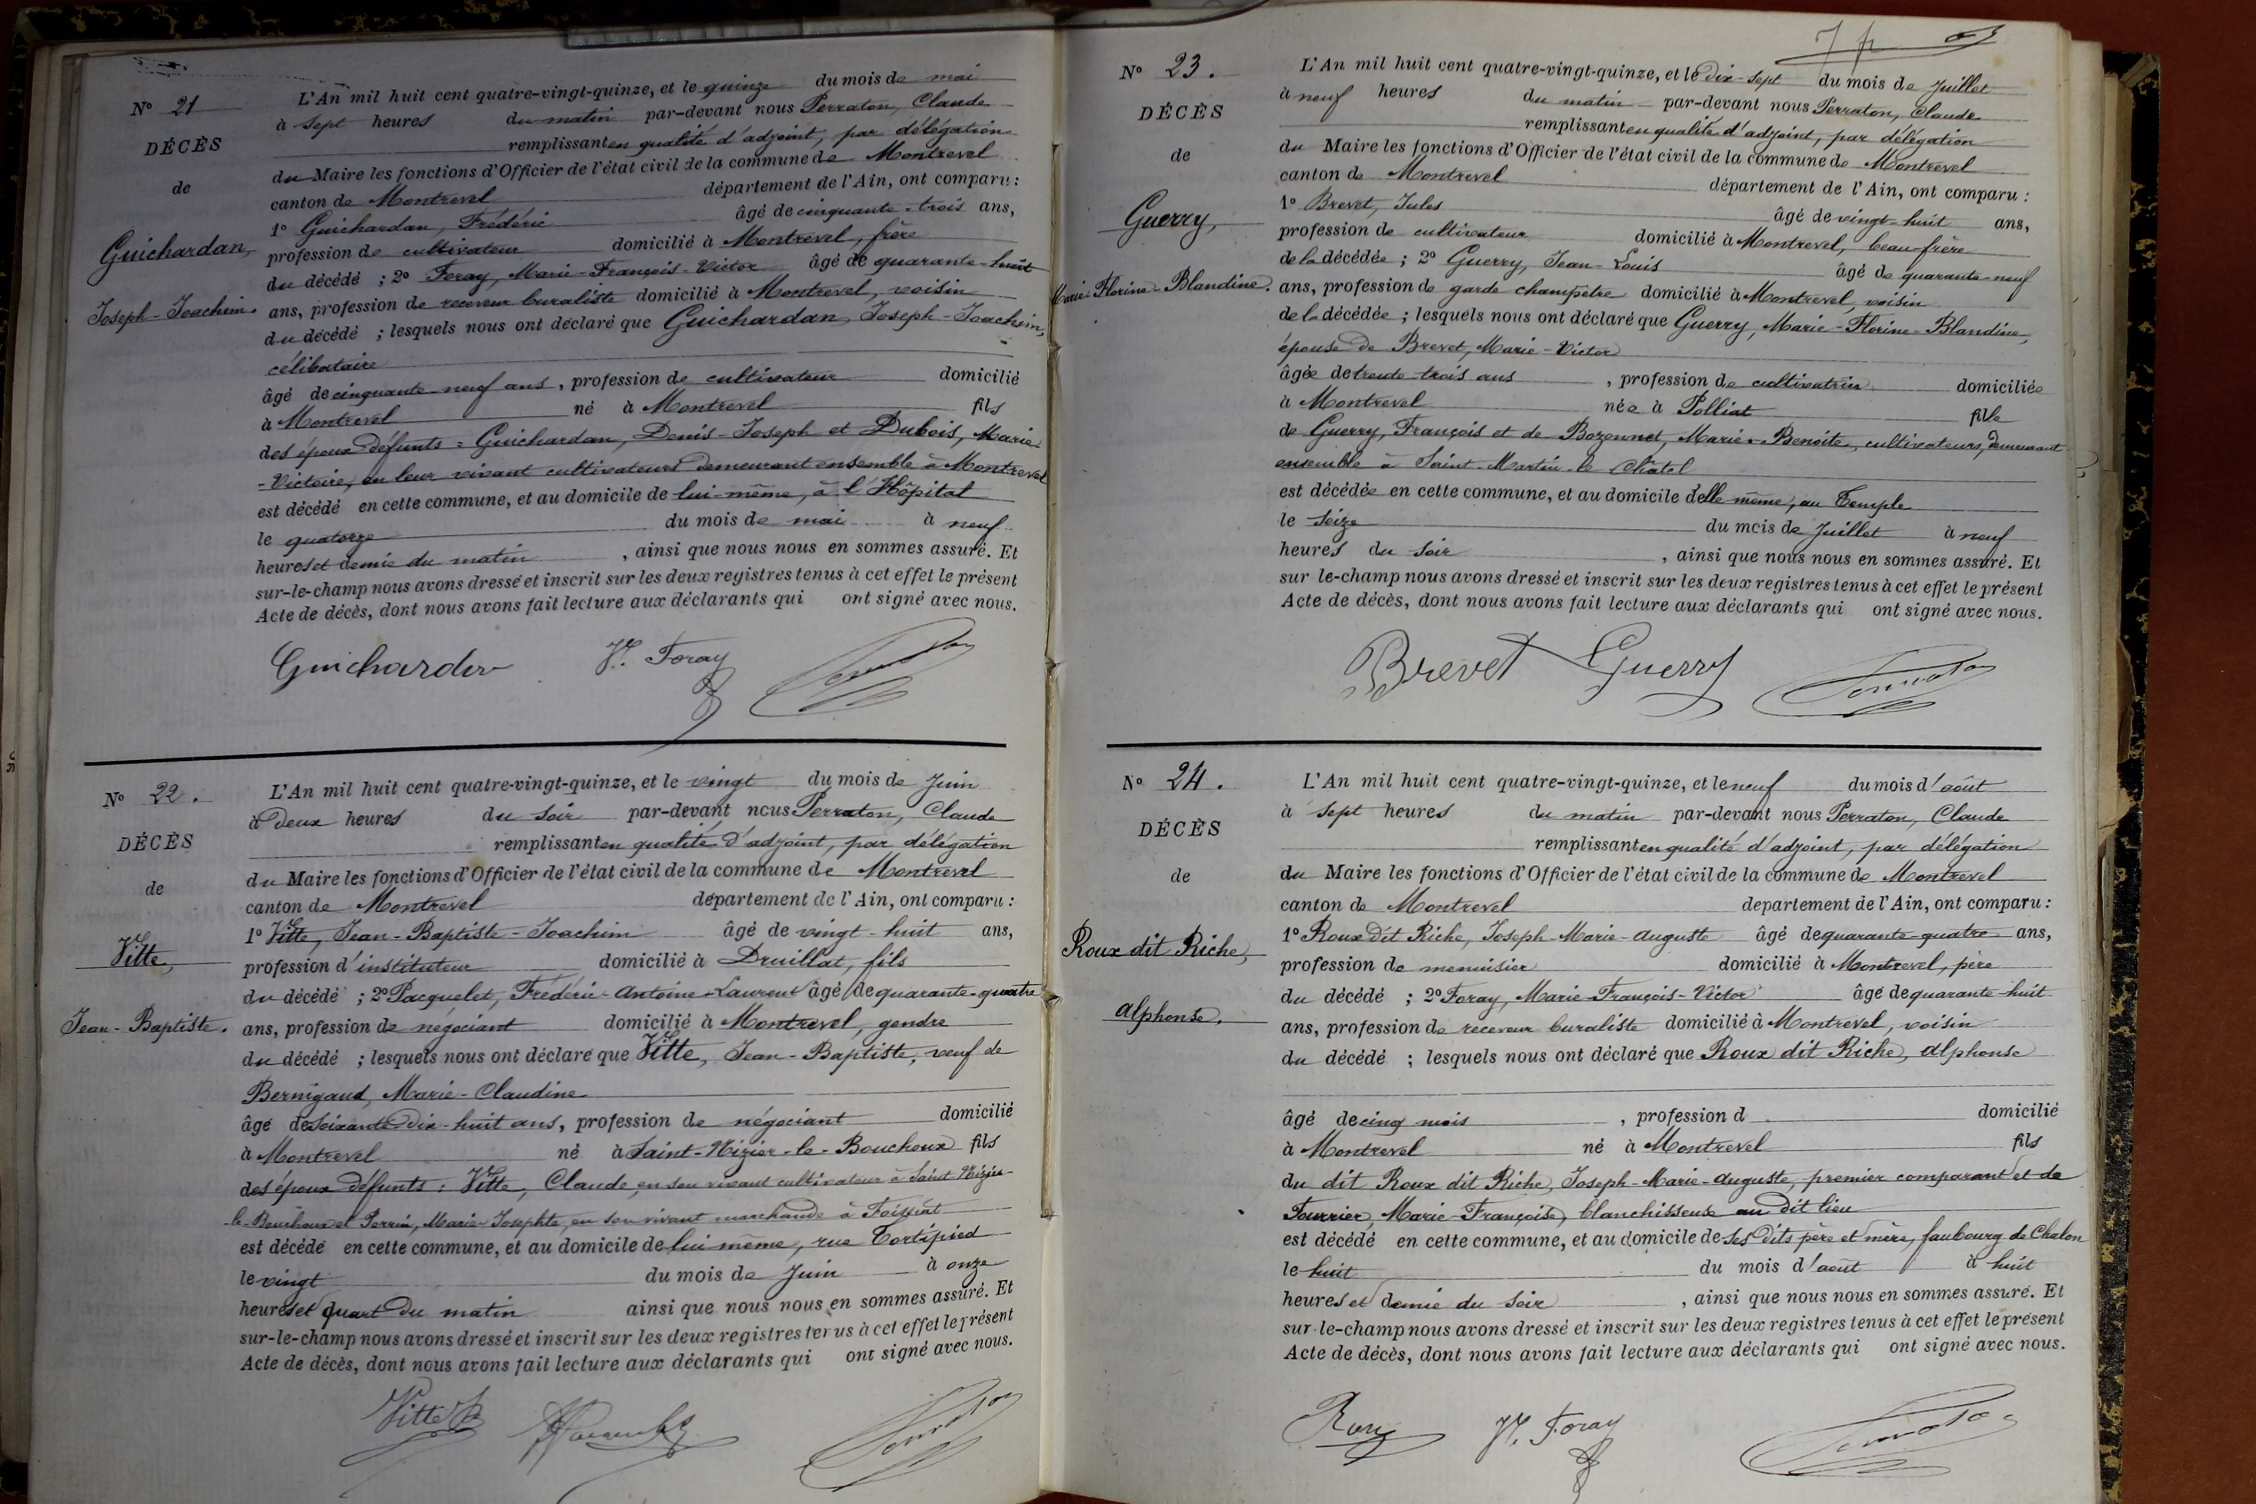 N° 21
DÉCÈS
de
Guichardan,
Joseph-Joachim.
L'An mil huit cent quatre-vingt-quinze, et le quinze du mois de mai
à sept heures du matin par-devant nous Perraton, Claude
remplissant en qualité d'adjoint, par délégation
du Maire les fonctions d'Officier de l'état civil de la commune de Montrevel
canton de Montrevel département de l'Ain, ont comparu :
1° Guichardan, Frédéric âgé de cinquante-trois ans,
profession de cultivateur domicilié à Montrevel, frère
du décédé ; 2° Foray, Marie-François-Victor âgé de quarante-huit
ans, profession de receveur buraliste domicilié à Montrevel, voisin
du décédé ; lesquels nous ont déclaré que Guichardan, Joseph-Joachim,
célibataire
âgé de cinquante neuf ans, profession de cultivateur domicilié
à Montrevel né à Montrevel fils
des époux défunts : Guichardan, Denis-Joseph et Dubois, Marie
-Victoire, en leur vivant cultivateurs demeurant ensemble à Montrevel
est décédé en cette commune, et au domicile de lui-même, à l'Hôpital
le quatorze du mois de mai à neuf
heures et demie du matin, ainsi que nous nous en sommes assuré. Et
sur-le-champ nous avons dressé et inscrit sur les deux registres tenus à cet effet le présent
Acte de décès, dont nous avons fait lecture aux déclarants qui ont signé avec nous.
Guichardan V. Foray Perraton
N° 22.
DÉCÈS
de
Vitte,
Jean-Baptiste.
L'An mil huit cent quatre-vingt-quinze, et le vingt du mois de Juin
à deux heures du soir par-devant nous Perraton, Claude
remplissant en qualité d'adjoint, par délégation
du Maire les fonctions d'Officier de l'état civil de la commune de Montrevel
canton de Montrevel département de l'Ain, ont comparu :
1° Vitte, Jean-Baptiste-Joachim âgé de vingt-huit ans,
profession d'instituteur domicilié à Druillat, fils
du décédé ; 2° Pacquelet, Frédéric-Antoine-Laurent âgé de quarante-quatre
ans, profession de négociant domicilié à Montrevel, gendre
du décédé ; lesquels nous ont déclaré que Vitte, Jean-Baptiste, veuf de
Bernigaud, Marie-Claudine
âgé de soixante dix-huit ans, profession de négociant domicilié
à Montrevel né à Saint-Nizier-le-Bouchoux fils
des époux défunts : Vitte, Claude, en son vivant cultivateur à Saint Nizier-
-le-Bouchoux et Perrin, Marie-Josephte, en son vivant marchande à Foissiat
est décédé en cette commune, et au domicile de lui même, rue Tortipied
le vingt du mois de Juin à onze
heures et quart du matin ainsi que nous nous en sommes assuré. Et
sur-le-champ nous avons dressé et inscrit sur les deux registres tenus à cet effet le présent
Acte de décès, dont nous avons fait lecture aux déclarants qui ont signé avec nous.
Vitte Perraton
N° 23.
DÉCÈS
de
Guerry,
Marie-Florine-Blandine.
L'An mil huit cent quatre-vingt-quinze, et le dix-sept du mois de Juillet
à neuf heures du matin par-devant nous Perraton, Claude
remplissant en qualité d'adjoint, par délégation
du Maire les fonctions d'Officier de l'état civil de la commune de Montrevel
canton de Montrevel département de l'Ain, ont comparu :
1° Brevet, Jules âgé de vingt-huit ans,
profession de cultivateur domicilié à Montrevel, beau-frère
de la décédée ; 2° Guerry, Jean-Louis âgé de quarante-neuf
ans, profession de garde champêtre domicilié à Montrevel, voisin
de la décédée ; lesquels nous ont déclaré que Guerry, Marie-Florine-Blandine,
épouse de Brevet, Marie-Victor
âgée de trente-trois ans, profession de cultivatrice domiciliée
à Montrevel née à Polliat fille
de Guerry, François et de Bozonnet, Marie-Benoite, cultivateurs, demeurant
ensemble à Saint-Martin-le-Châtel
est décédée en cette commune, et au domicile d'elle même, au Temple
le seize du mois de Juillet à neuf
heures du soir, ainsi que nous nous en sommes assuré. Et
sur le-champ nous avons dressé et inscrit sur les deux registres tenus à cet effet le présent
Acte de décès, dont nous avons fait lecture aux déclarants qui ont signé avec nous.
Brevet Guerry Perraton
N° 24.
DÉCÈS
de
Roux dit Riche,
Alphonse.
L'An mil huit cent quatre-vingt-quinze, et le neuf du mois d'août
à sept heures du matin par-devant nous Perraton, Claude
remplissant en qualité d'adjoint, par délégation
du Maire les fonctions d'Officier de l'état civil de la commune de Montrevel
canton de Montrevel département de l'Ain, ont comparu :
1° Roux dit Riche, Joseph-Marie-Auguste âgé de quarante-quatre ans,
profession de menuisier domicilié à Montrevel, père
du décédé ; 2° Foray, Marie-François-Victor âgé de quarante-huit
ans, profession de receveur buraliste domicilié à Montrevel, voisin
du décédé ; lesquels nous ont déclaré que Roux dit Riche, Alphonse
âgé de cinq mois, profession d domicilié
à Montrevel né à Montrevel fils
du dit Roux dit Riche, Joseph-Marie-Auguste, premier comparant et de
Fourrier, Marie-Françoise, blanchisseuse au dit lieu
est décédé en cette commune, et au domicile de ses dits père et mère, faubourg de Chalon
le huit du mois d'août à huit
heures et demie du soir, ainsi que nous nous en sommes assuré. Et
sur-le-champ nous avons dressé et inscrit sur les deux registres tenus à cet effet le présent
Acte de décès, dont nous avons fait lecture aux déclarants qui ont signé avec nous.
Roux V. Foray Perraton